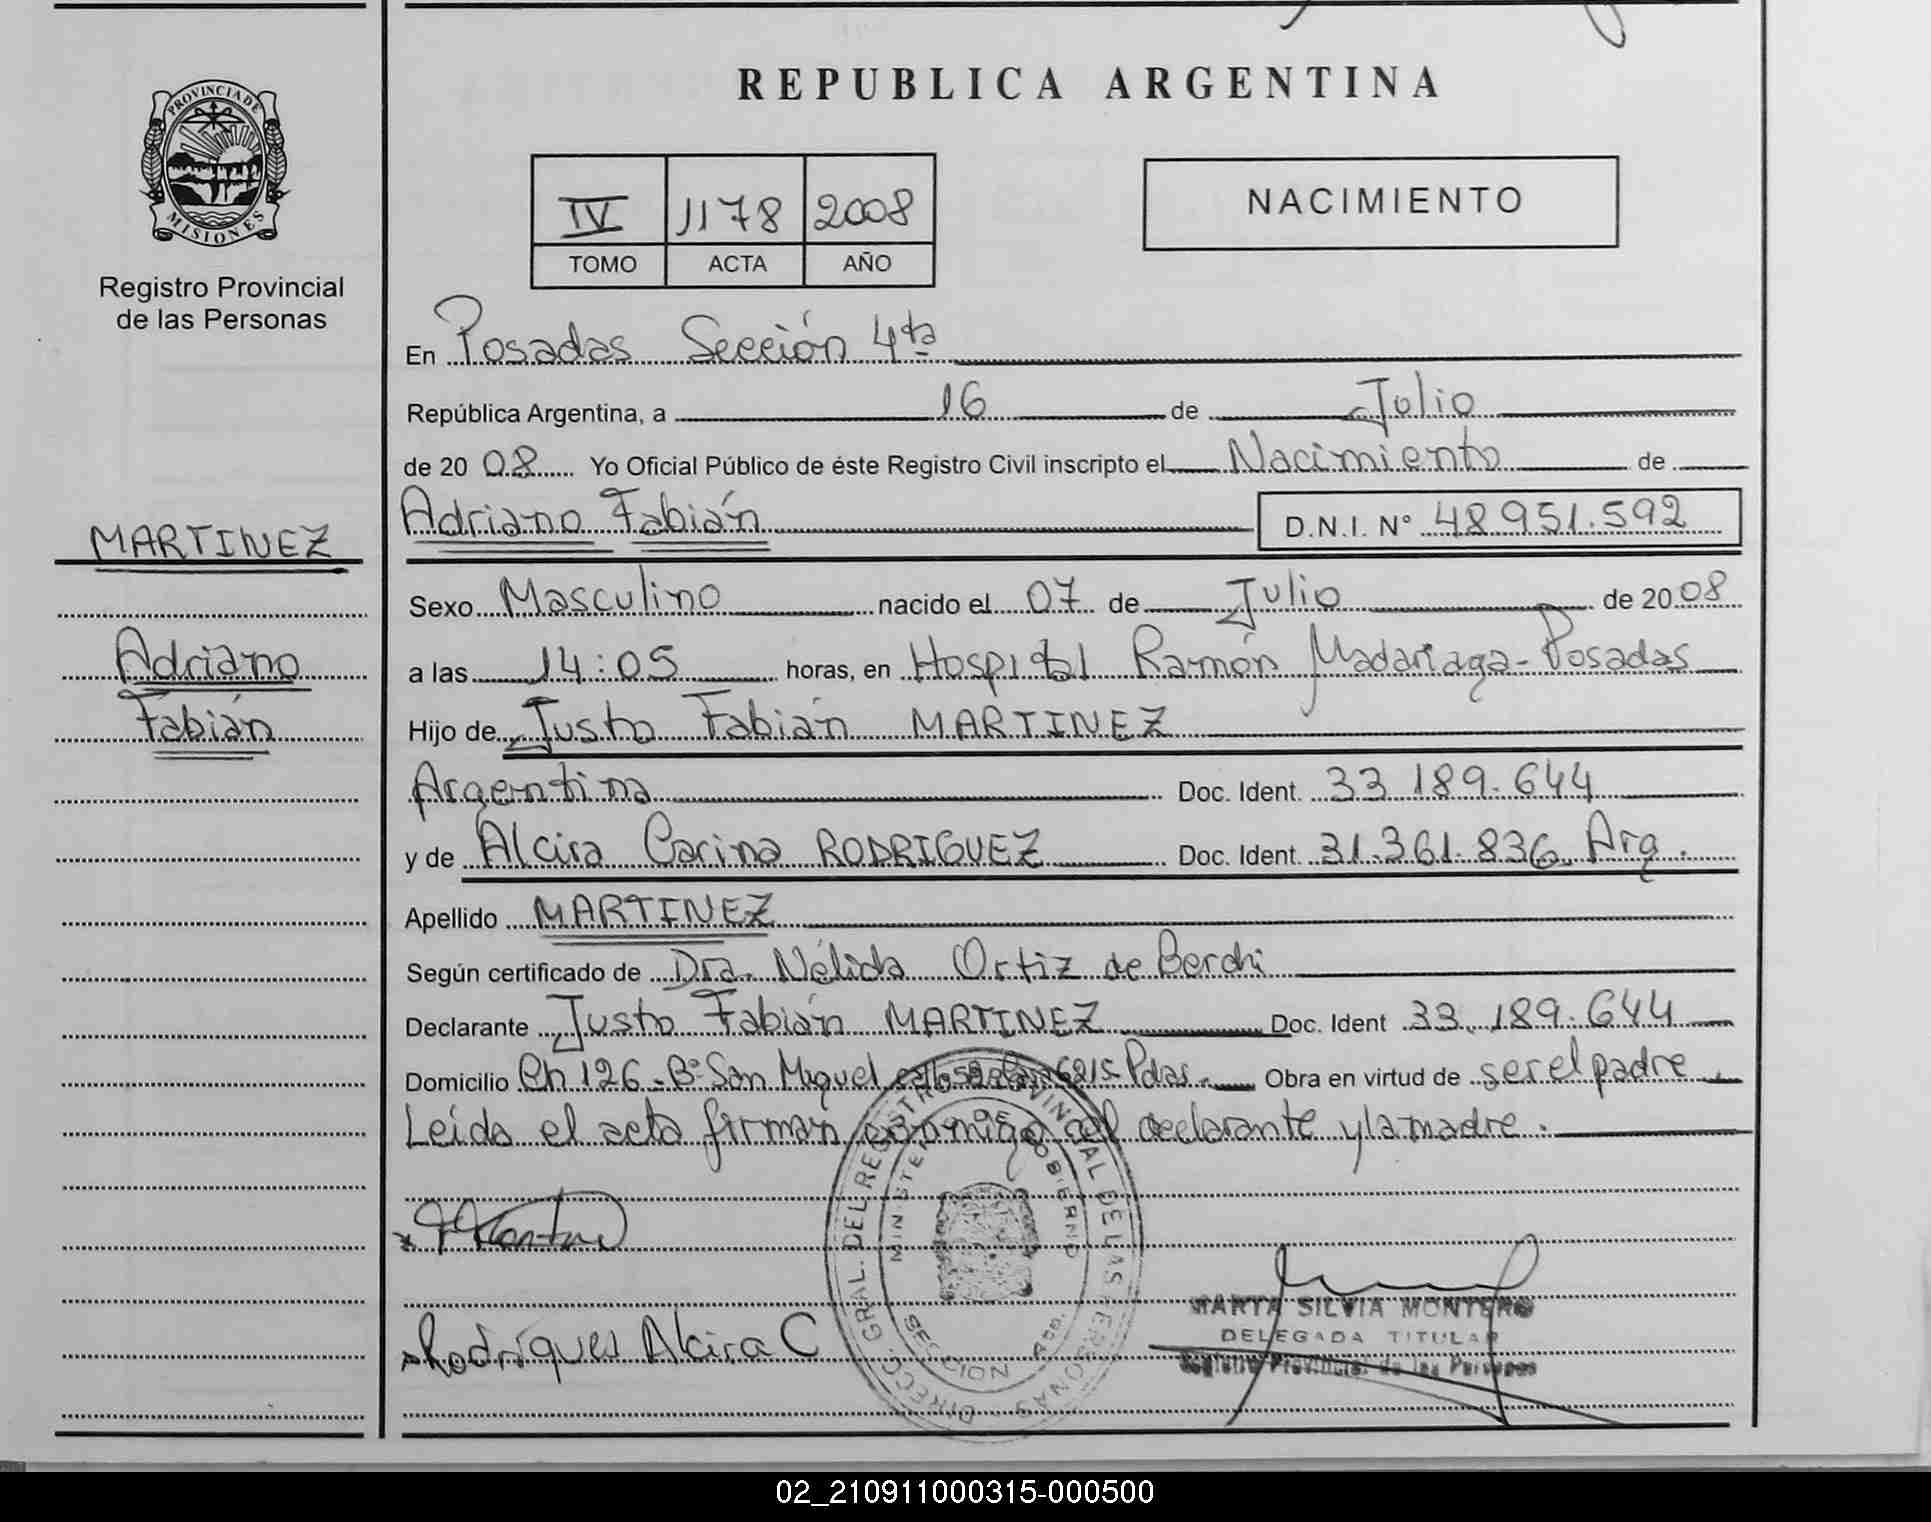 REPUBLICA ARGENTINA
PROVINCIA DE
MISIONES
Registro Provincial
de las Personas
IV 1178 2008
TOMO ACTA AÑO
NACIMIENTO
En Posadas Sección 4ta
República Argentina, a 16 de Julio
de 20 08 Yo Oficial Público de éste Registro Civil inscripto el Nacimiento de
Adriano Fabián D.N.I. N° 48951.592
MARTINEZ
Adriano
Fabián
Sexo Masculino nacido el 07 de Julio de 20 08
a las 14:05 horas, en Hospital Ramón Madariaga - Posadas
Hijo de Justo Fabián MARTINEZ
Argentina Doc. Ident. 33 189.644
y de Alcira Carina RODRIGUEZ Doc. Ident. 31.361.836. Arg.
Apellido MARTINEZ
Según certificado de Dra. Nélida Ortiz de Berchi
Declarante Justo Fabián MARTINEZ Doc. Ident 33.189.644
Domicilio Ch 126 - B° San Miguel 6215 - Pdas. Obra en virtud de ser el padre
Leida el acta firman conmigo el declarante y la madre.
DIRECC. GRAL. DEL REGISTRO PROVINCIAL DE LAS PERSONAS
MINISTERIO DE GOBIERNO
SECCION
Rodrígues Alcira C
MARTA SILVIA MONTERO
DELEGADA TITULAR
Registro Provincial de las Personas
02_210911000315-000500